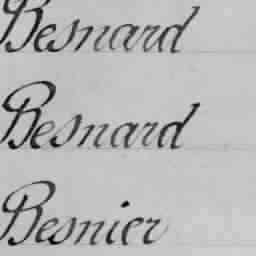 Besnard
Besnard
Besnier